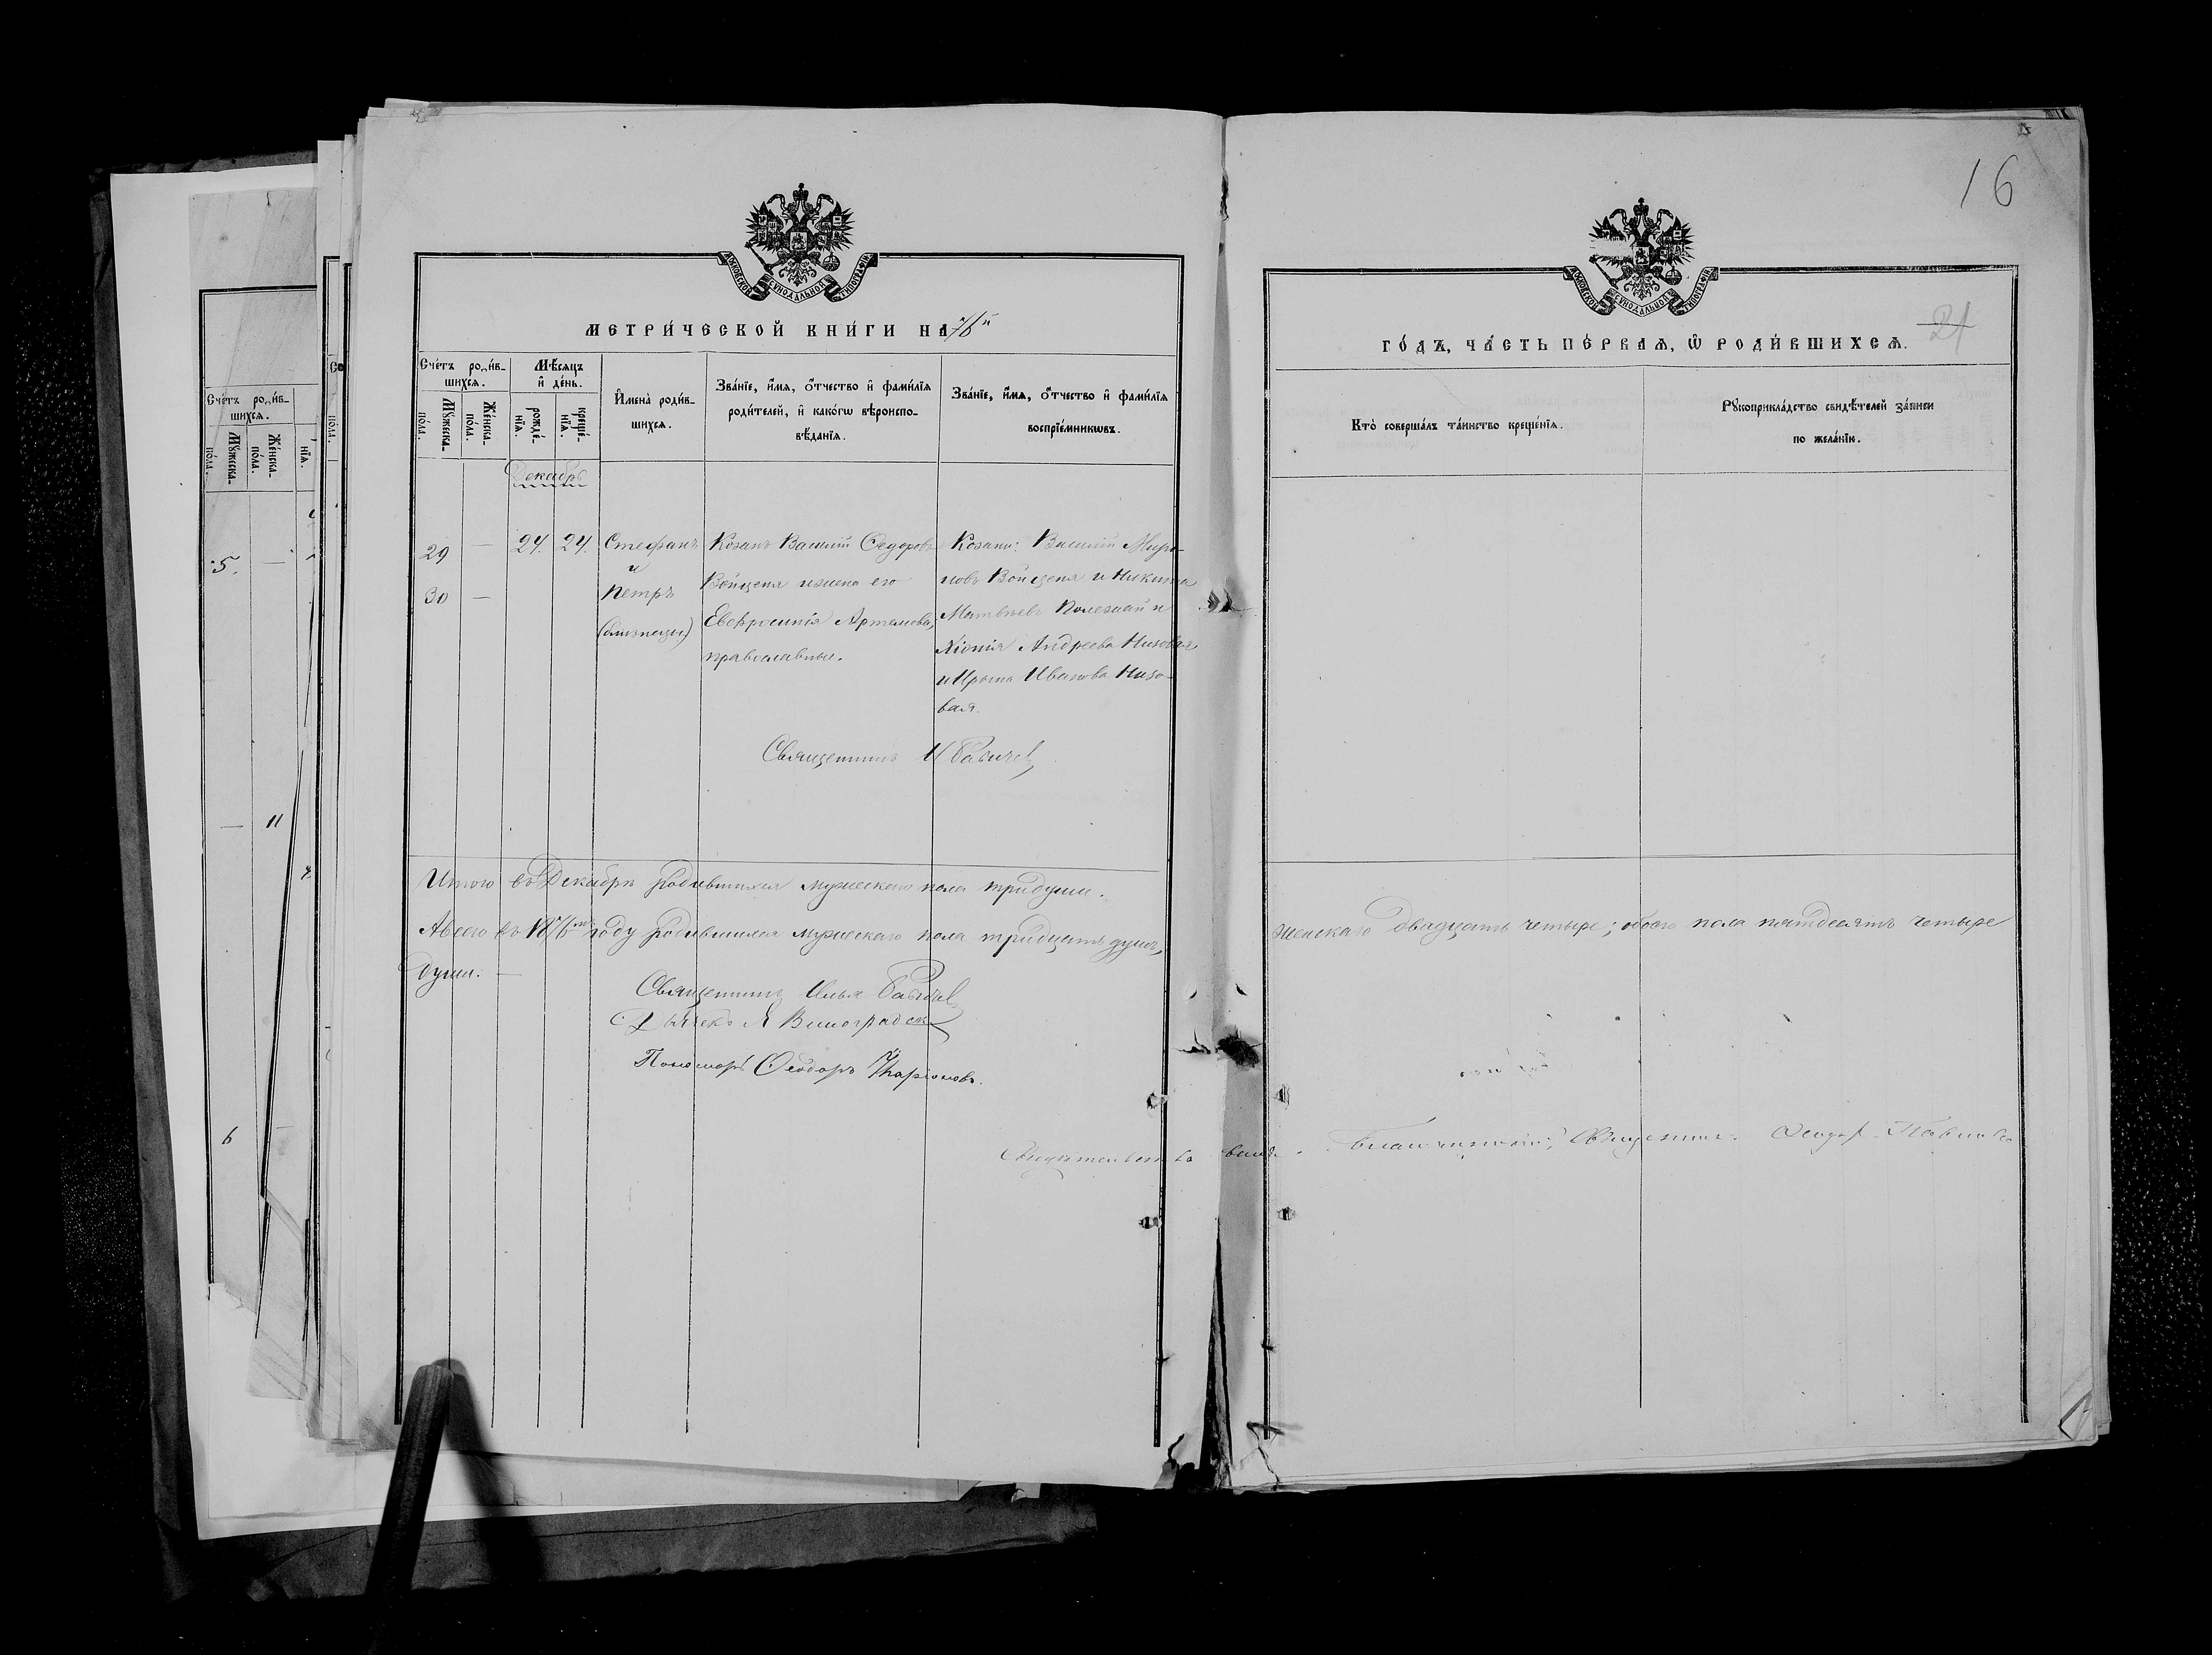 16
21
МЕТРИ́ЧЕСКОЙ КНИ́ГИ НА 76й
ГО́ДЪ, ЧА́СТЬ ПЕ́РВАЯ, Ѡ РОДИ́ВШИХСЯ.
Сче́тъ роди́в-
шихся.
Мꙋ́жеска-
по́ла.
Же́нска-
по́ла.
Мѣ́сяцъ
и҆ де́нь.
рожде́-
нїя.
креще́-
нїя.
И҆мена̀ роди́в-
шихся.
Зва́нїе, и҆́мя, ѻ҆́тчество и҆ фами́лїя
роди́телей, и҆ како́гѡ вѣроиспо-
вѣ́данїя.
Зва́нїе, и҆́мя, ѻ҆́тчество и҆ фами́лїя
воспрїе́мникѡвъ.
Кто̀ соверша́лъ та́инство креще́нїя.
Рꙋкоприкла́дство свидѣ́телей за́писи
по жела́нїю.
Декабрь
29 — 24. 24. Стефанъ
и
30 — Петръ
(близнецы)
Козакъ Василій Ѳедоровъ
Войценя и жена его
Евфросинія Артемова,
православные.
Козаки: Василій Миро-
новъ Войценя и Никита
Матвѣевъ и
Хіонія Андреева Низовая
и Ирина Иванова Низо-
вая.
Священникъ И
Итого въ Декабрѣ родившихся мужескаго пола три души.
А всего въ 1876мъ году родившихся мужескаго пола тридцать душъ, женскаго двадцать четыре; обоего пола пятдесятъ четыре
души. —
Священникъ Илья
Дьячекъ Виноградск
Пономарь Ѳеодоръ
Священник Ѳеодор
Сче́тъ роди́в-
шихся.
Мꙋ́жеска-
по́ла.
Же́нска-
по́ла.
нїя.
5. —
— 11
6 —